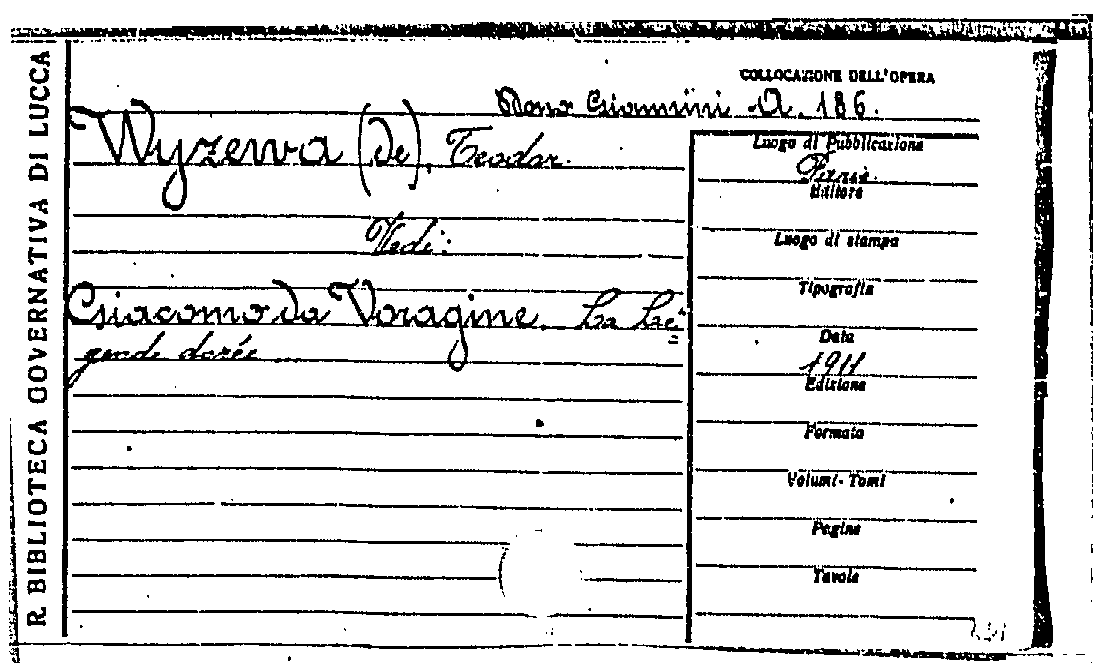 R. BIBLIOTECA GOVERNATIVA DI LUCCA
COLLOCAZIONE DELL'OPERA
Dono Giannini A. 186.
Wyzewa (de), Teodor.
Vedi:
Giacomo da Voragine. La Lé-
gende dorée
Luogo di Pubblicazione
Paris
Editore
Luogo di stampa
Tipografia
Data
1911
Edizione
Formato
Volumi-Tomi
Pagine
Tavole